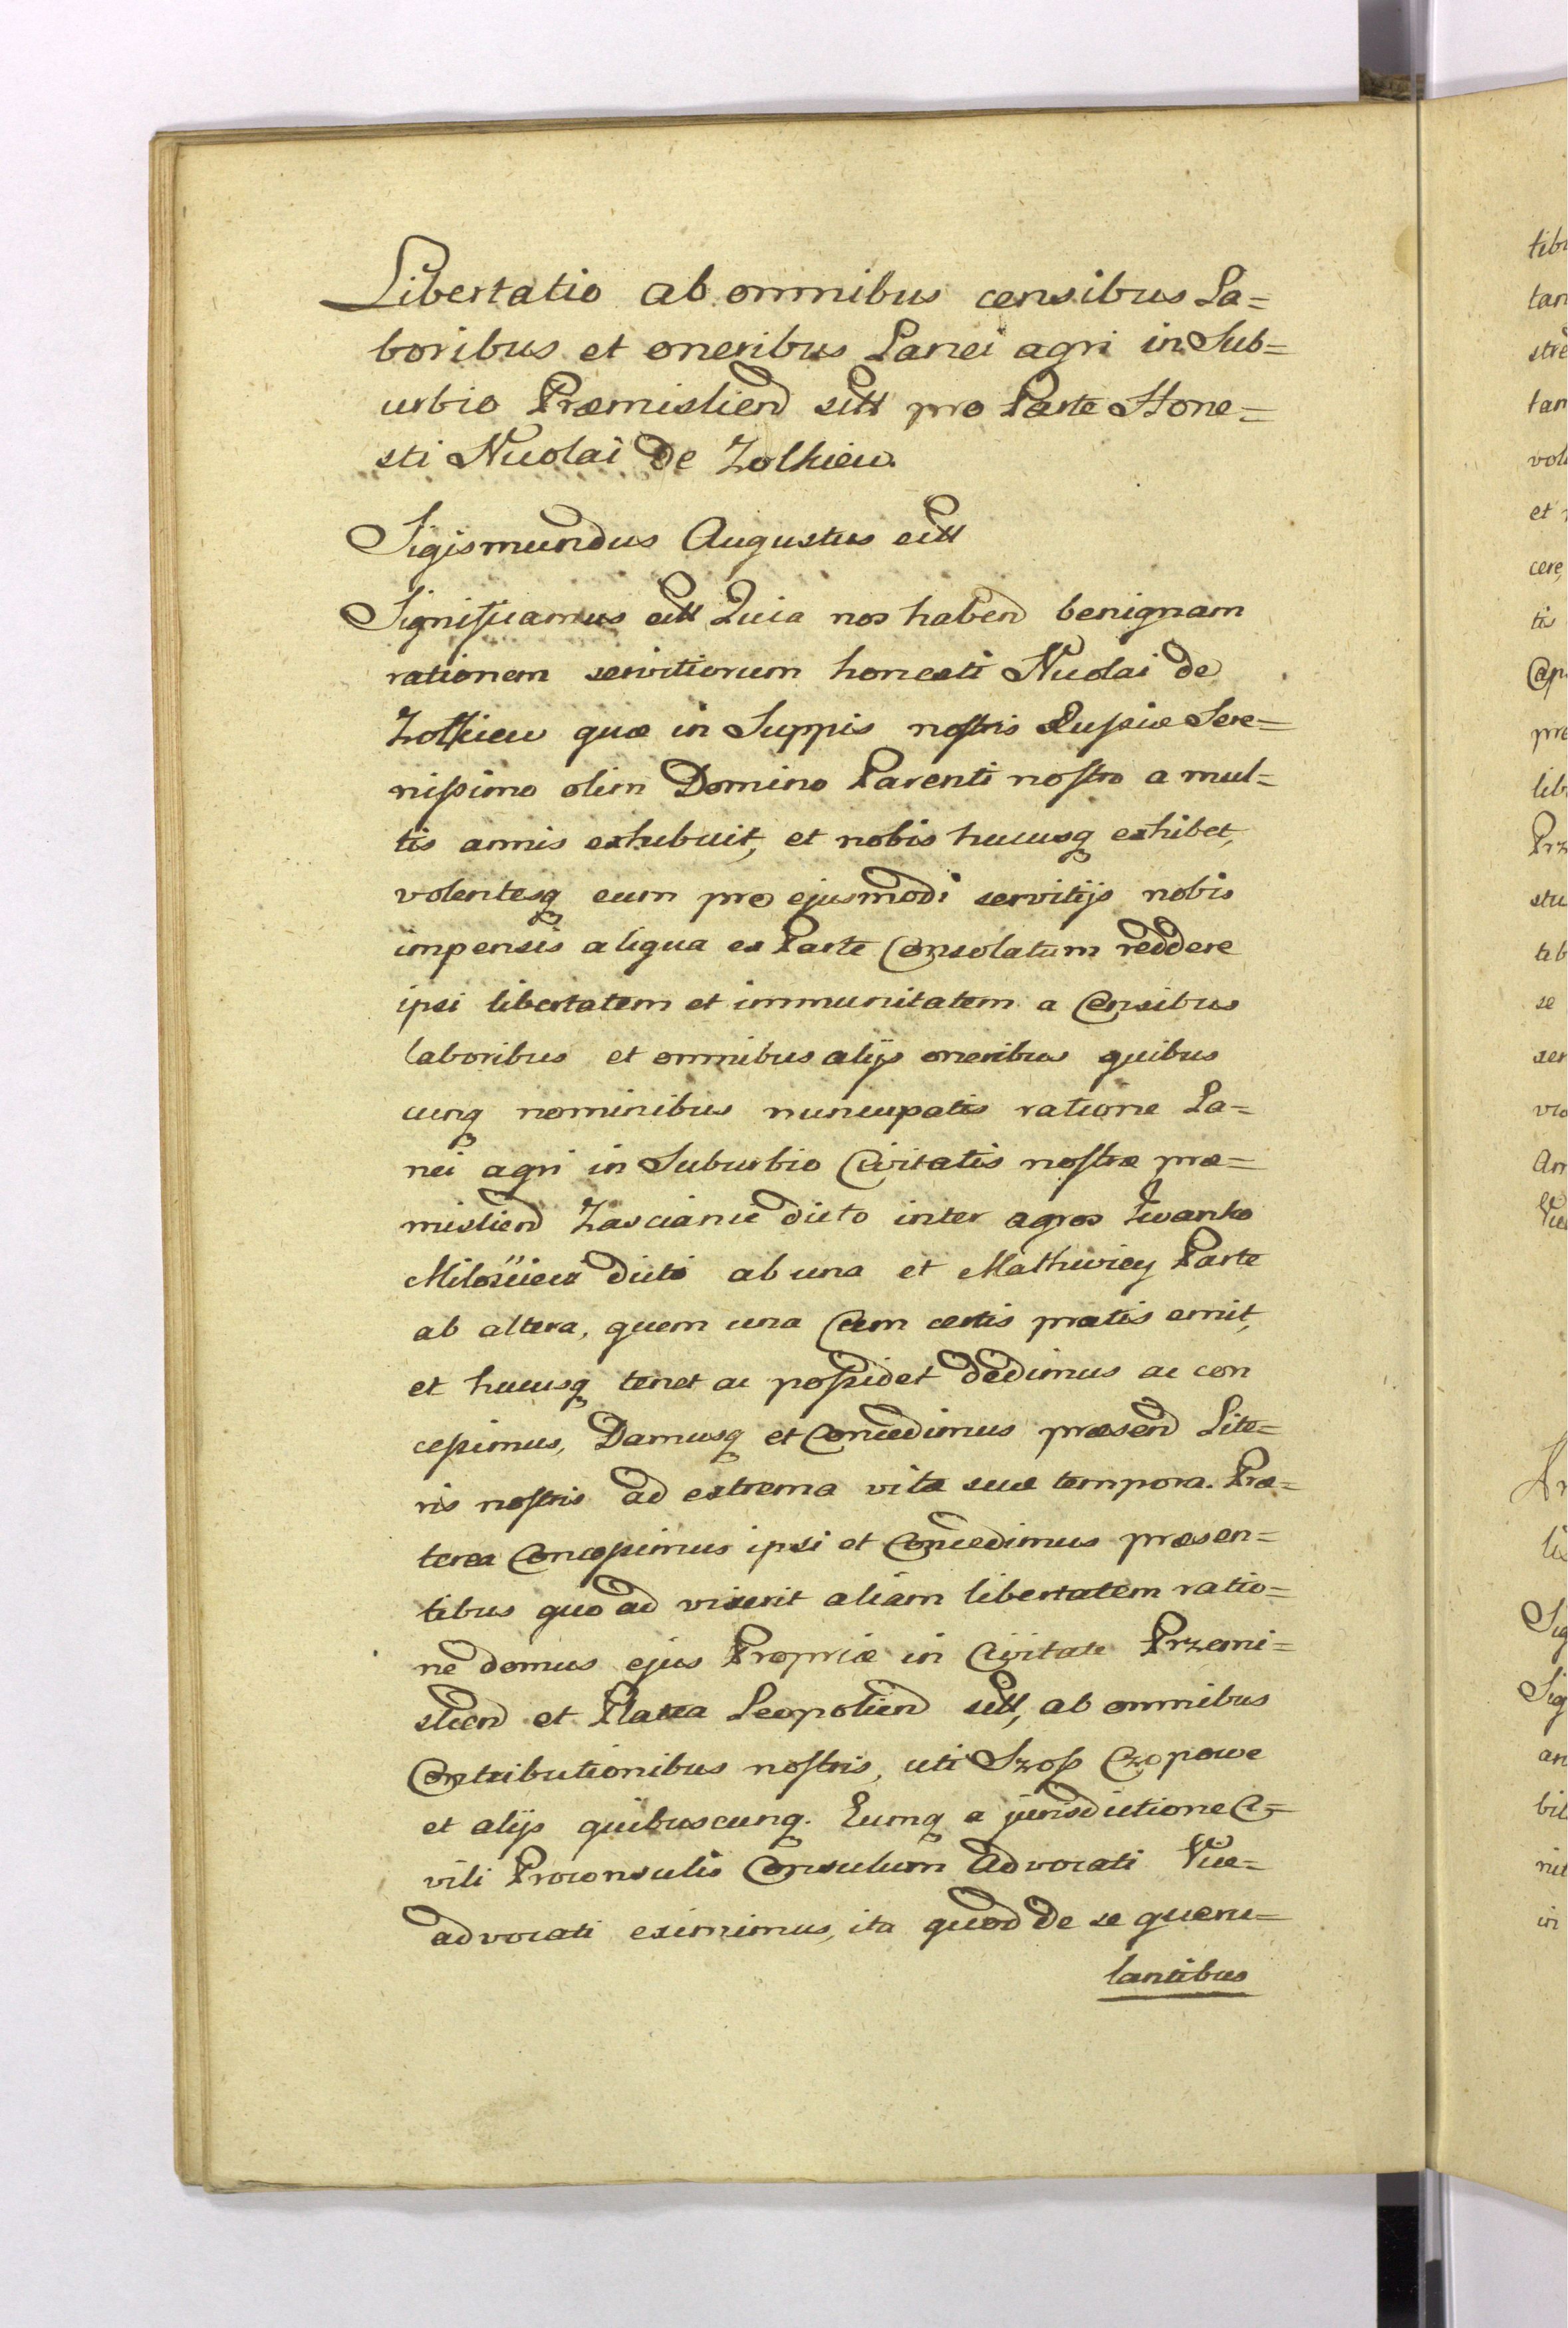 Libertatio ab omnibus censibus La=
boribus et oneribus Lanei agri in Sub=
urbio Præmislien sitt pro Parte Hone=
sti Nicolai de Zolkiew.
Sigismundus Augustus ett
Significamus ett Quia nos haben benignam
rationem servitiorum honesti Nicolai de
Zolkiew quæ in Suppis nostris Russiæ Sere=
nissimo olim Domino Parenti nostro a mul=
tis annis exhibuit, et nobis hucusq exhibet,
volentesq eum pro ejusmodi servitijs nobis
impensis aliqua ex Parte Consolatum reddere
ipsi libertatem et immunitatem a Censibus
laboribus et omnibus alijs oneribus quibus
cunq nominibus nuncupatis ratione La=
nei agri in Suburbio Civitatis nostræ præ=
mislien Zascianie dicto inter agros Iwanko
dicti ab una et Parte
ab altera, quem una Cum certis pratis emit,
et hucusq tenet ac possidet dedimus ac con
cessimus, Damusq et Concedimus præsen Lite=
ris nostris ad extrema vitæ suæ tempora. Præ=
terea Concessimus ipsi et Concedimus præsen=
tibus quo ad vixerit aliam libertatem ratio=
ne domus ejus Propriæ in Civitate Przemi=
slien et Platea Leopolien sitt, ab omnibus
Contributionibus nostris, uti Szoss Czopowe
et alijs quibuscunq. Eumq a jurisdictione Ci=
vili Proconsulis Consulum Advocati Vice=
advocati eximimus, ita quod de se queru=
lantibus